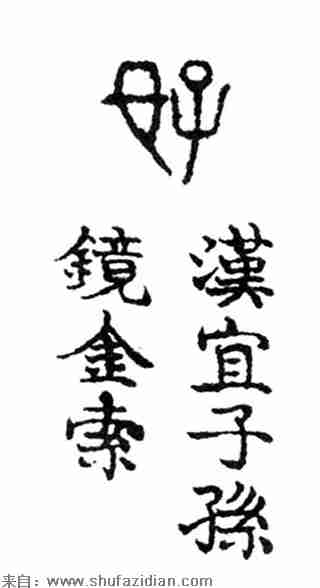 好
漢宜子孫
鏡金索
来自：www.shufazidian.com